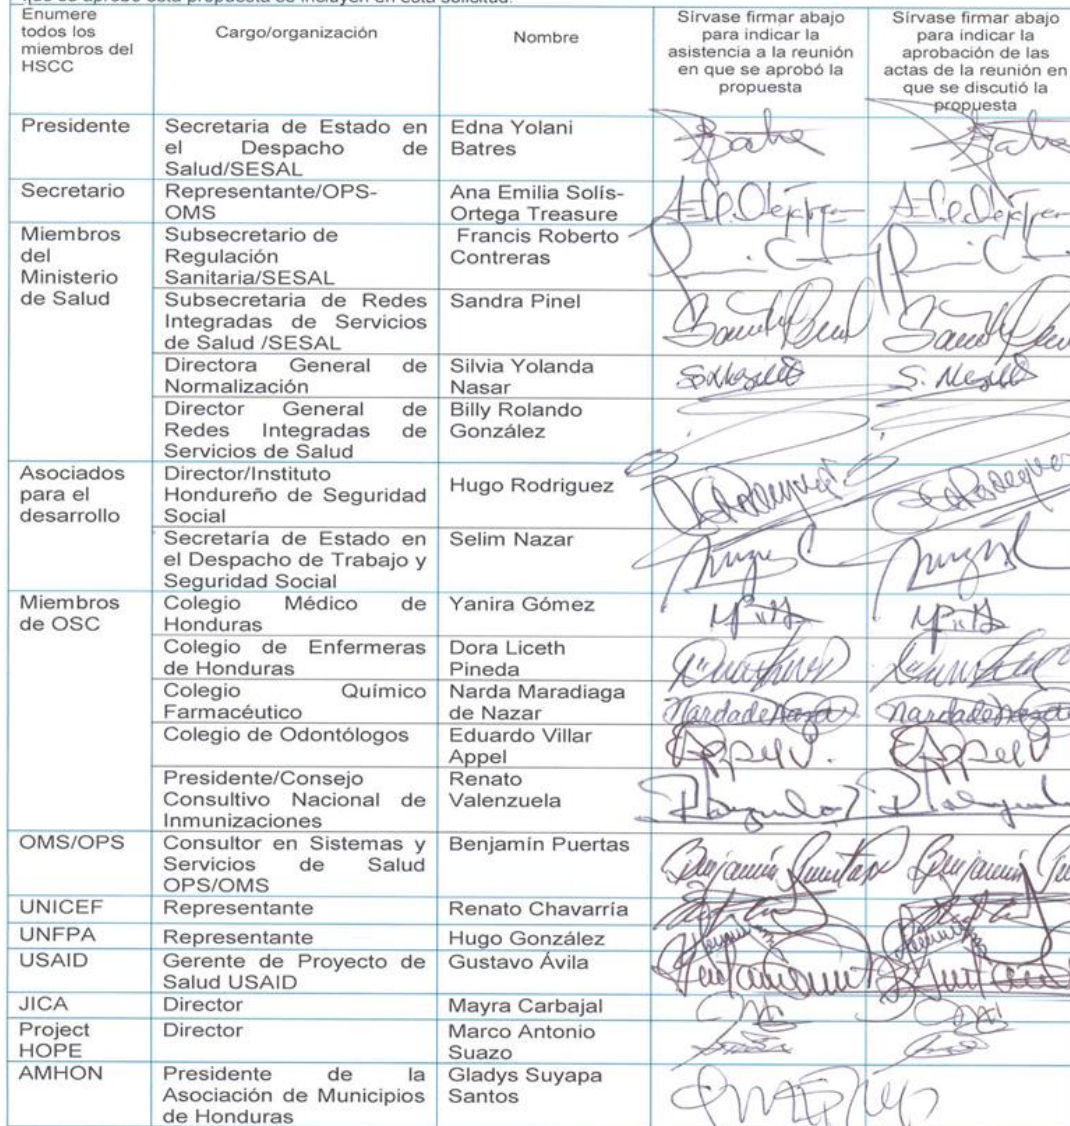 que se aprobó esta propuesta se incluyen en esta solicitud.
Enumere
todos los
miembros del
HSCC
Cargo/organización
Nombre
Sírvase firmar abajo
para indicar la
asistencia a la reunión
en que se aprobó la
propuesta
Sírvase firmar abajo
para indicar la
aprobación de las
actas de la reunión en
que se discutió la
propuesta
Presidente
Secretaria de Estado en
el Despacho de
Salud/SESAL
Edna Yolani
Batres
Secretario
Representante/OPS-
OMS
Ana Emilia Solís-
Ortega Treasure
Miembros
del
Ministerio
de Salud
Subsecretario de
Regulación
Sanitaria/SESAL
Francis Roberto
Contreras
Subsecretaria de Redes
Integradas de Servicios
de Salud /SESAL
Sandra Pinel
Directora General de
Normalización
Silvia Yolanda
Nasar
Director General de
Redes Integradas de
Servicios de Salud
Billy Rolando
González
Asociados
para el
desarrollo
Director/Instituto
Hondureño de Seguridad
Social
Hugo Rodriguez
Secretaría de Estado en
el Despacho de Trabajo y
Seguridad Social
Selim Nazar
Miembros
de OSC
Colegio Médico de
Honduras
Yanira Gómez
Colegio de Enfermeras
de Honduras
Dora Liceth
Pineda
Colegio Químico
Farmacéutico
Narda Maradiaga
de Nazar
Colegio de Odontólogos
Eduardo Villar
Appel
Presidente/Consejo
Consultivo Nacional de
Inmunizaciones
Renato
Valenzuela
OMS/OPS
Consultor en Sistemas y
Servicios de Salud
OPS/OMS
Benjamín Puertas
UNICEF
Representante
Renato Chavarría
UNFPA
Representante
Hugo González
USAID
Gerente de Proyecto de
Salud USAID
Gustavo Ávila
JICA
Director
Mayra Carbajal
Project
HOPE
Director
Marco Antonio
Suazo
AMHON
Presidente de la
Asociación de Municipios
de Honduras
Gladys Suyapa
Santos